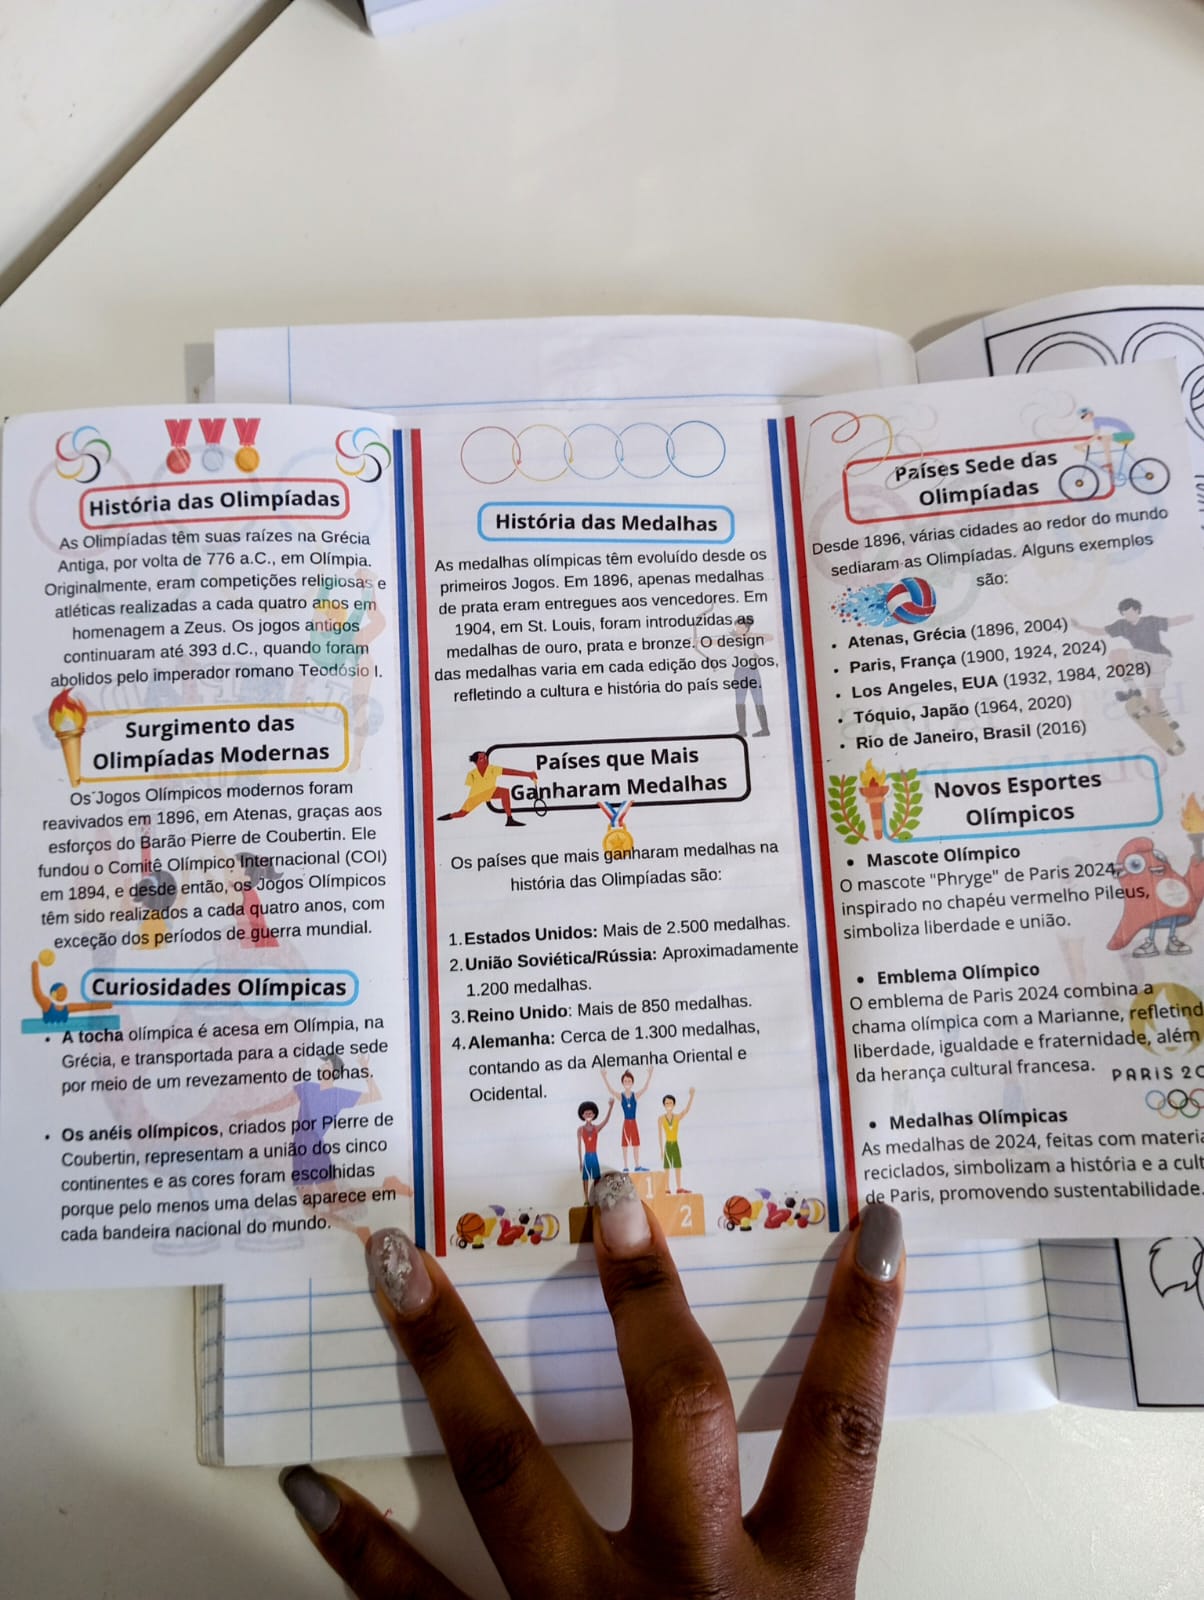 História das Olimpíadas
As Olimpíadas têm suas raízes na Grécia
Antiga, por volta de 776 a.C., em Olímpia.
Originalmente, eram competições religiosas e
atléticas realizadas a cada quatro anos em
homenagem a Zeus. Os jogos antigos
continuaram até 393 d.C., quando foram
abolidos pelo imperador romano Teodósio I.
Surgimento das
Olimpíadas Modernas
Os Jogos Olímpicos modernos foram
reavivados em 1896, em Atenas, graças aos
esforços do Barão Pierre de Coubertin. Ele
fundou o Comitê Olímpico Internacional (COI)
em 1894, e desde então, os Jogos Olímpicos
têm sido realizados a cada quatro anos, com
exceção dos períodos de guerra mundial.
Curiosidades Olímpicas
• A tocha olímpica é acesa em Olímpia, na
Grécia, e transportada para a cidade sede
por meio de um revezamento de tochas.
• Os anéis olímpicos, criados por Pierre de
Coubertin, representam a união dos cinco
continentes e as cores foram escolhidas
porque pelo menos uma delas aparece em
cada bandeira nacional do mundo.
História das Medalhas
As medalhas olímpicas têm evoluído desde os
primeiros Jogos. Em 1896, apenas medalhas
de prata eram entregues aos vencedores. Em
1904, em St. Louis, foram introduzidas as
medalhas de ouro, prata e bronze. O design
das medalhas varia em cada edição dos Jogos,
refletindo a cultura e história do país sede.
Países que Mais
Ganharam Medalhas
Os países que mais ganharam medalhas na
história das Olimpíadas são:
1. Estados Unidos: Mais de 2.500 medalhas.
2. União Soviética/Rússia: Aproximadamente
1.200 medalhas.
3. Reino Unido: Mais de 850 medalhas.
4. Alemanha: Cerca de 1.300 medalhas,
contando as da Alemanha Oriental e
Ocidental.
1
2
Países Sede das
Olimpíadas
Desde 1896, várias cidades ao redor do mundo
sediaram as Olimpíadas. Alguns exemplos
são:
• Atenas, Grécia (1896, 2004)
• Paris, França (1900, 1924, 2024)
• Los Angeles, EUA (1932, 1984, 2028)
• Tóquio, Japão (1964, 2020)
• Rio de Janeiro, Brasil (2016)
Novos Esportes
Olímpicos
• Mascote Olímpico
O mascote "Phryge" de Paris 2024,
inspirado no chapéu vermelho Pileus,
simboliza liberdade e união.
• Emblema Olímpico
O emblema de Paris 2024 combina a
chama olímpica com a Marianne, refletind
liberdade, igualdade e fraternidade, além
da herança cultural francesa.
PARIS 20
• Medalhas Olímpicas
As medalhas de 2024, feitas com materia
reciclados, simbolizam a história e a cult
de Paris, promovendo sustentabilidade.